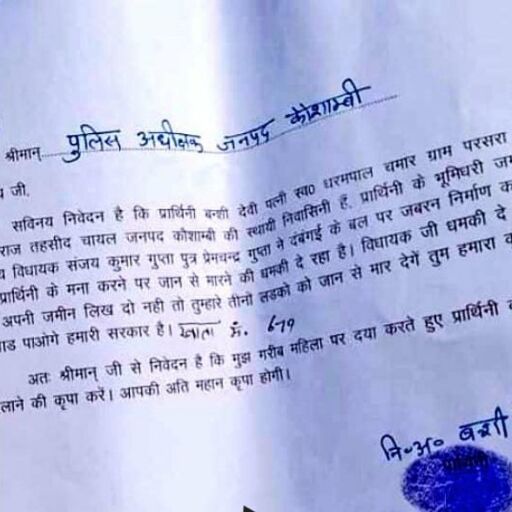 श्रीमान् पुलिस अधीक्षक जनपद कौशाम्बी
जी,
सविनय निवेदन है कि प्रार्थिनी बन्शी देवी पत्नी स्व0 धरमपाल चमार ग्राम परसरा
राज तहसीद चायल जनपद कौशाम्बी की स्थायी निवासिनी हैं. प्रार्थिनी के भूमिधरी
विधायक संजय कुमार गुप्ता पुत्र प्रेमचन्द्र गुप्ता ने दंबंगाई के बल पर जबरन निर्माण
प्रार्थिनी के मना करने पर जान से मारने की धमकी दे रहा है। विधायक जी धमकी दे
अपनी जमीन लिख दो नही तो तुम्हारे तीनो लडको को जान से मार देगें तुम हमारा
पाओगे हमारी सरकार है। नं. 679
अतः श्रीमान् जी से निवेदन है कि मुझ गरीब महिला पर दया करते हुए प्रार्थिनी
लाने की कृपा करें। आपकी अति महान कृपा होगी।
नि०अ० बन्शी